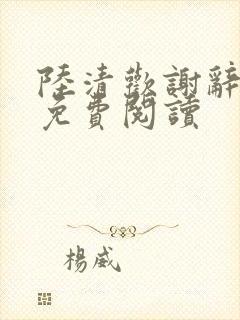 陸清歡謝辭
免費閱讀
楊威